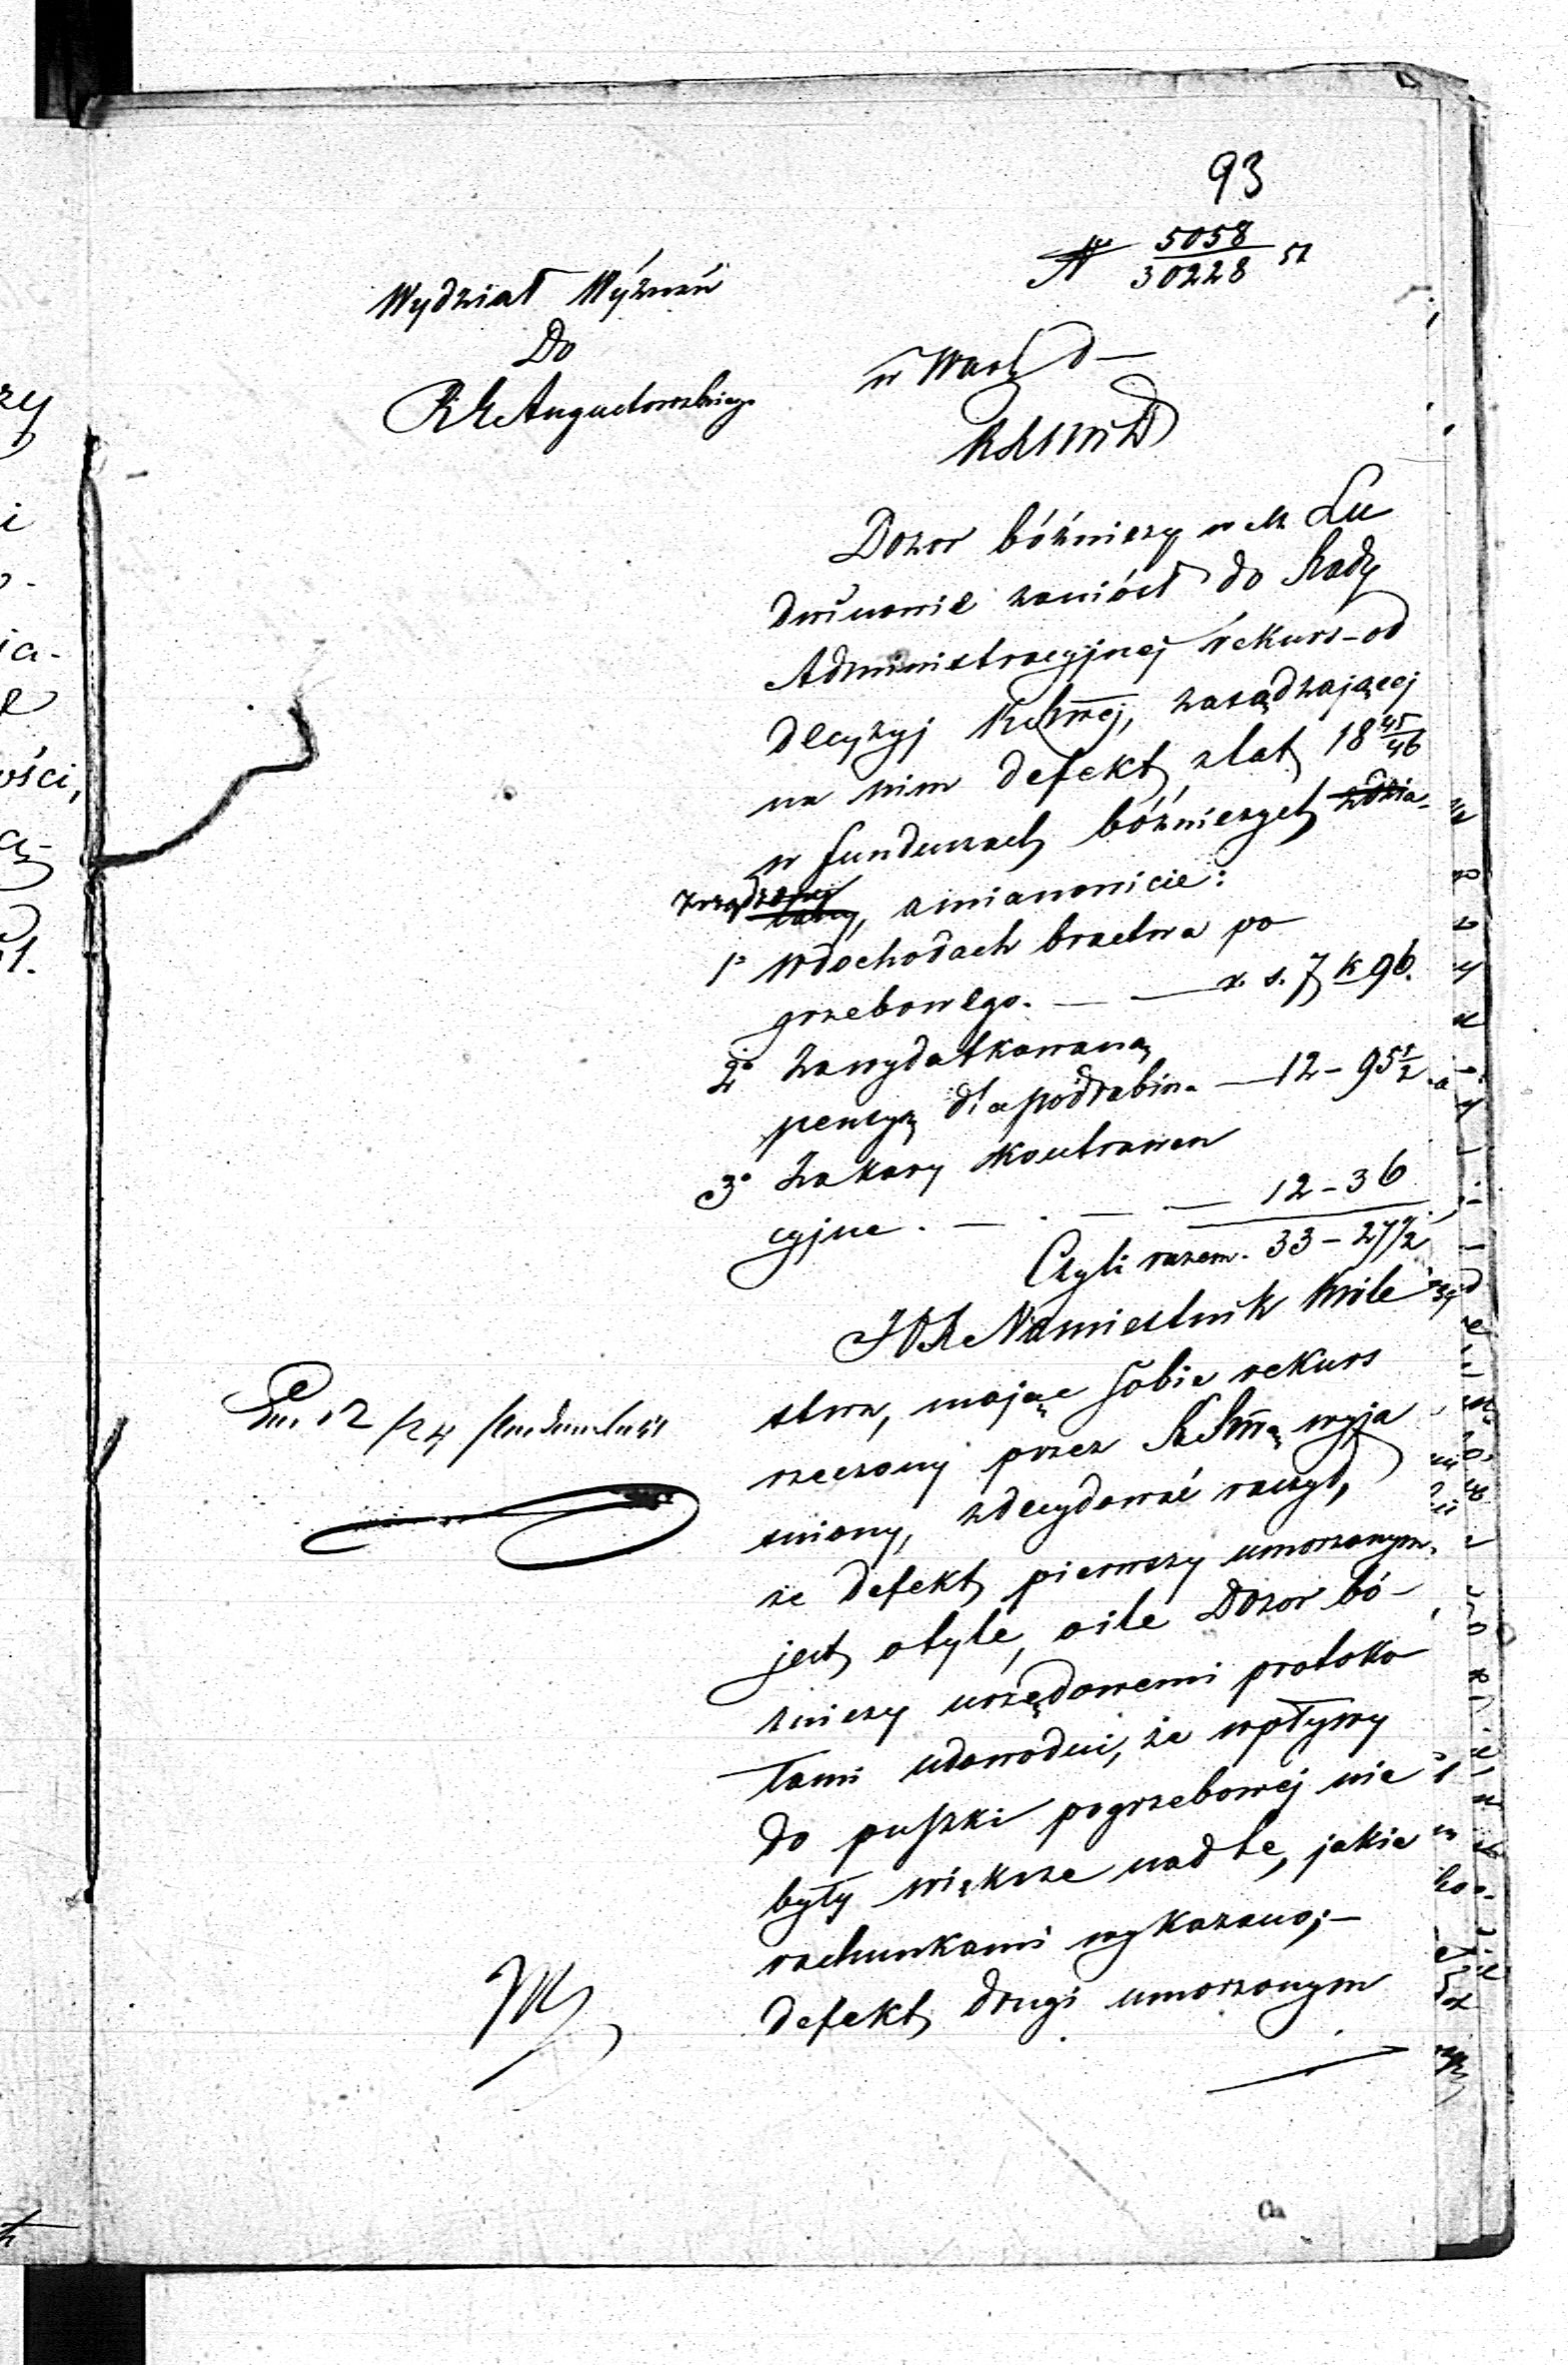 93
N 5058/30228 51
Wydział Wyznań
Do
RG Augustowskiego
w Warsz d —
KRSWiD
Dozor bóźniczy w M. Lu
dwinowie zaniósł do Rady
Administracyjnej rekurs od
decyzyj KRSwej, zasądzającej
na nim defekt z lat 18 45/46
w funduszach bóźniczych zdzia-
łany, zrządzony, a mianowicie:
1° w dochodach bractwa po
grzebowego. — — r. s. 7 k 96.
2° za wydatkowaną
pensyą dla podrabina — 12 - 95 1/2
3° za kary kontrawen
cyjne . — . — . — 12 - 36
Czyli razem. 33 - 27 1/2
JO. Namiestnik Króle
stwa, mając sobie rekurs
rzeczony przez wyja
śniony, zdecydować raczył,
że defekt pierwszy umorzonym
jest o tyle, o ile Dozor bó-
źniczy urzędowemi protoko
łami udowodni, że wpływy
do puszki pogrzebowéj nie
były większe nad te, jakie
rachunkami wykazano; —
defekt drugi umorzonym
12/24